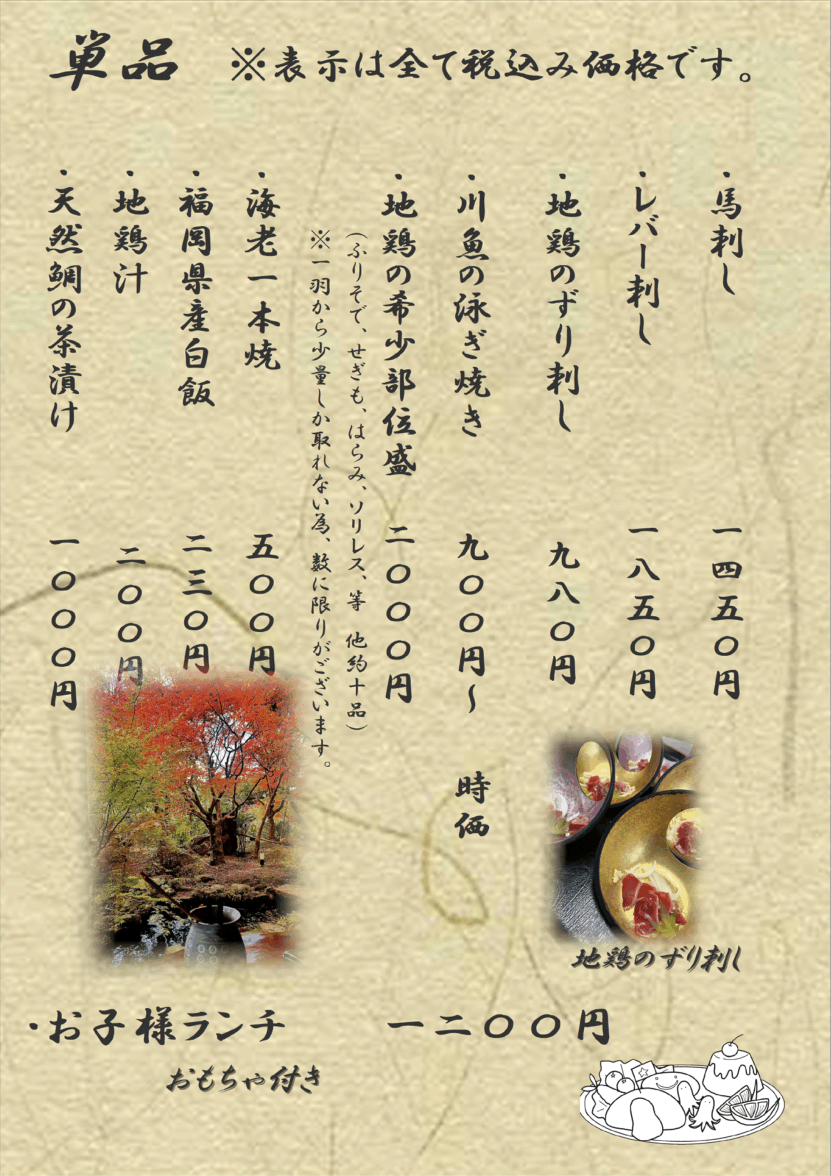 単品　※表示は全て税込み価格です。
・馬刺し　一四五〇円
・レバー刺し　一八五〇円
・地鶏のずり刺し　九八〇円
・川魚の泳ぎ焼き　九〇〇円〜　時価
・地鶏の希少部位盛　二〇〇〇円
（ふりそで、せぎも、はらみ、ソリレス、等　他約十品）
※一羽から少量しか取れない為、数に限りがございます。
・海老一本焼　五〇〇円
・福岡県産白飯　二三〇円
・地鶏汁　二〇〇円
・天然鯛の茶漬け　一〇〇〇円
地鶏のずり刺し
・お子様ランチ　一二〇〇円
おもちゃ付き